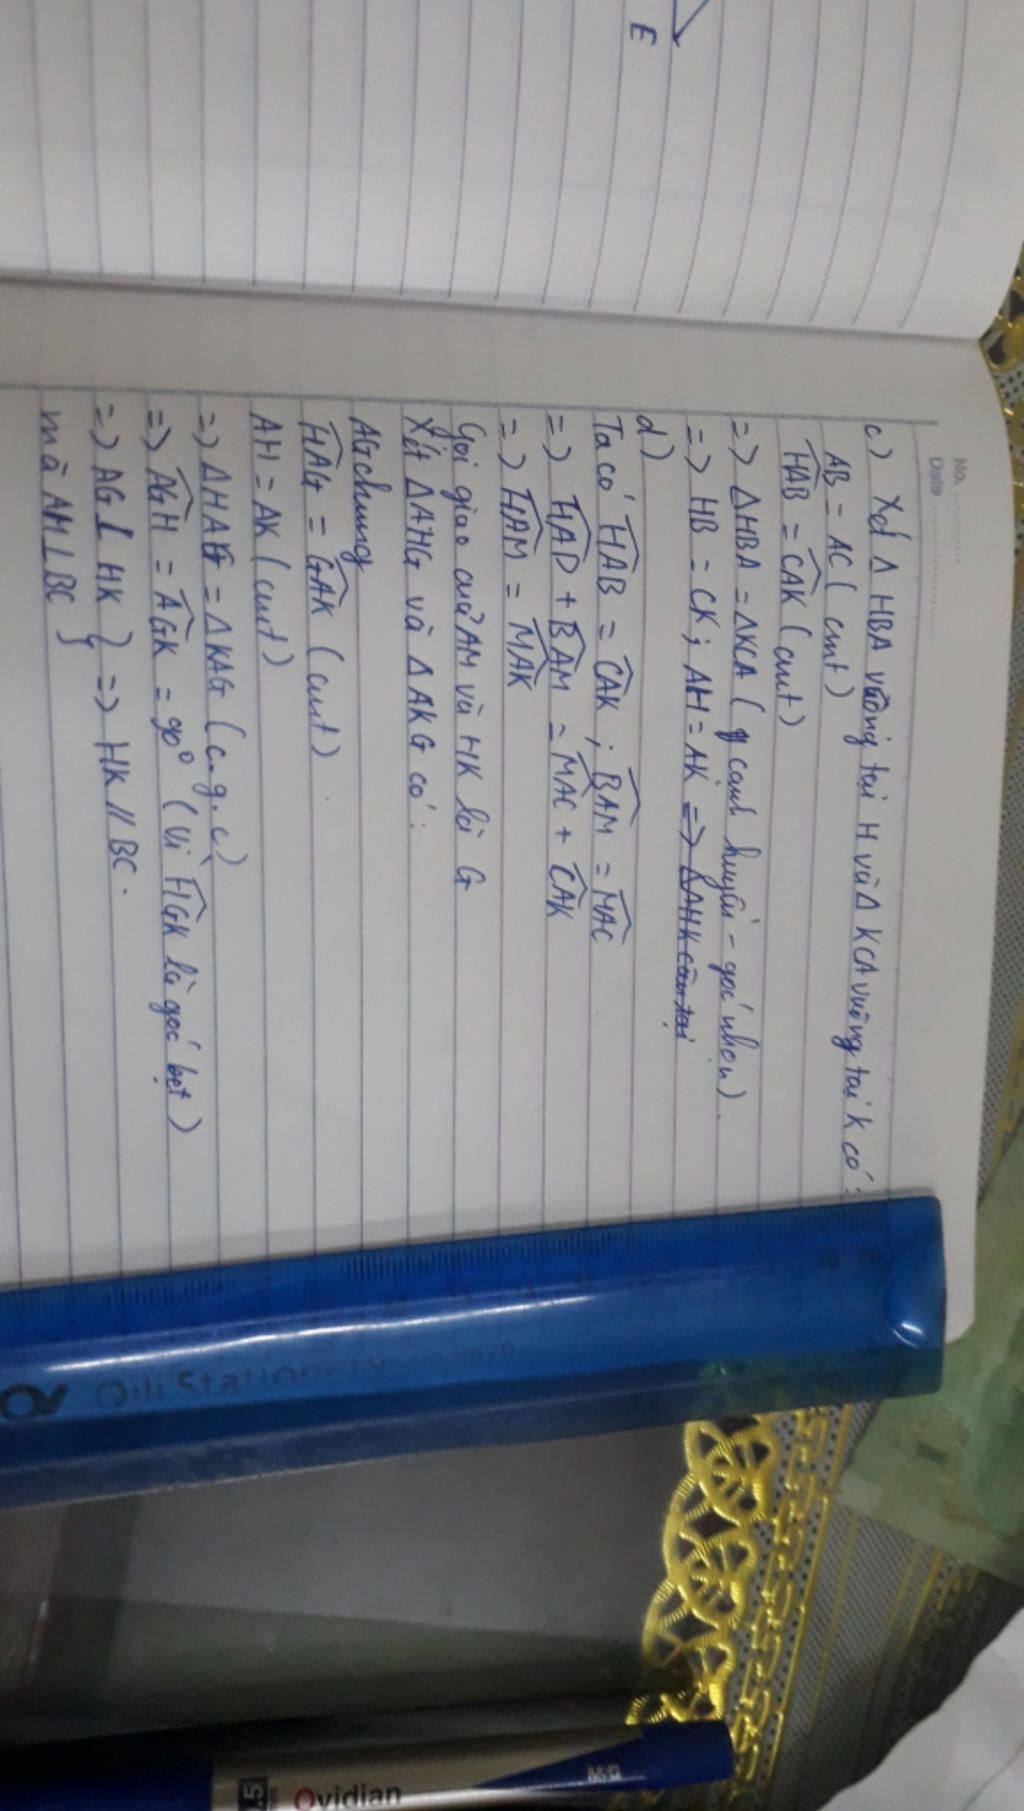 E
No. ............
Date ..................
c) Xét Δ HBA vuông tại H và Δ KCA vuông tại K có :
AB = AC ( cmt )
HAB = CAK ( cmt )
=> ΔHBA = ΔKCA ( cạnh huyền - góc nhọn ) .
=> HB = CK ; AH = AK => ΔAHK cân tại
d )
Ta có HAB = CAK ; BAM = MAC
=> HAD + BAM = MAC + CAK
=> HAM = MAK
Gọi giao của AM và HK là G
Xét ΔAHG và Δ AKG có :
AG chung
HAG = GAK ( cmt ) .
AH = AK ( cmt )
=> ΔHAG = ΔKAG ( c.g.c )
=> AGH = AGK = 90° ( vì HGK là góc bẹt )
=> AG ⊥ HK } => HK // BC .
mà AM ⊥ BC }
Qili Stationery
Ovidian
M&G